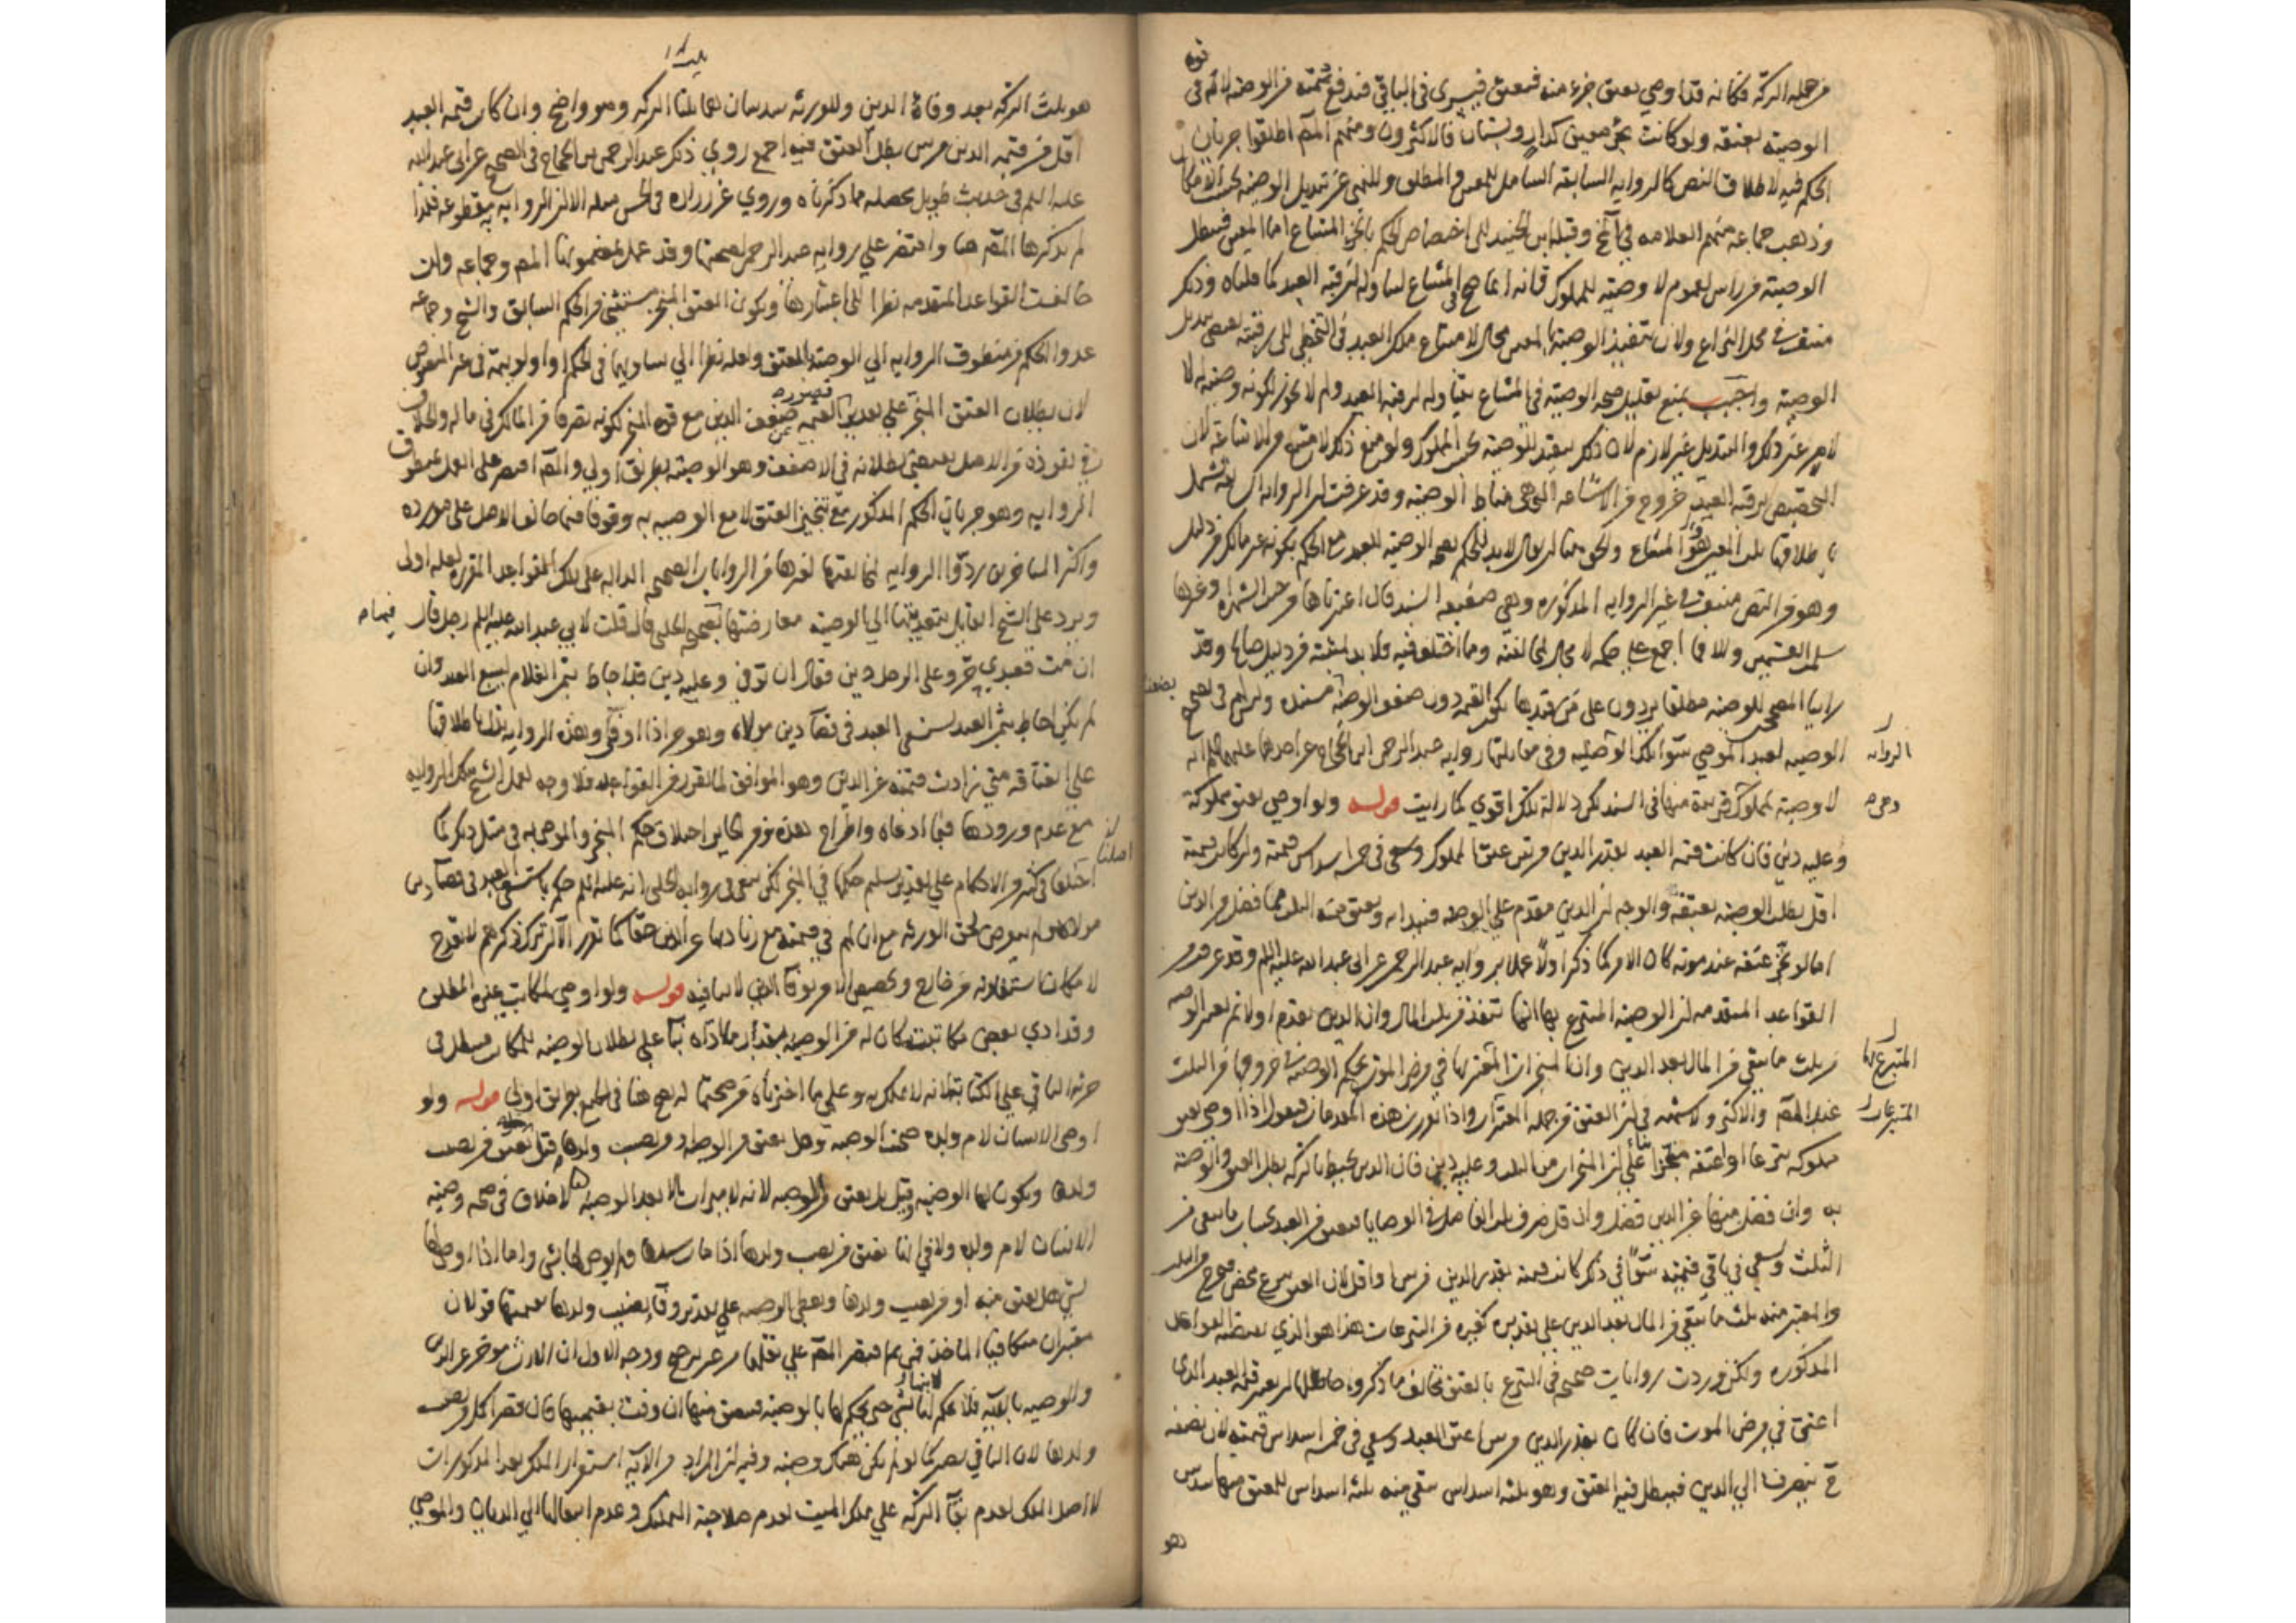 من جملة التركة فكانه قد اوصى بعتق جزء منه فيعتق فيسرى في الباقي فيدفع ثمنه من الوصية لانه في
الوصية بعتقه ولو كانت بجزء معين كدار وبستان فالاكثرون ومنهم المص اطلقوا جريان
الحكم فيه لاطلاق النص كالرواية السابقة الشامل للمعين والمطلق وللنهي عن تبديل الوصية بحسب الامكان
وذهب جماعة منهم العلامة في وقبله ابن الجنيد الى اختصاص الحكم بالجزء المشاع اما المعين فتبطل
الوصية من راس لعموم لا وصية لمملوك فانه انما صح في المشاع لتناوله لرقبة العبد كما قلناه وذلك
منتف في محل النزاع ولان تنفيذ الوصية بالمعين محال لامتناع ملك العبد في التخطي الى رقبته يقتضي تبديل
الوصية واجيب بمنع تعليل صحة الوصية في المشاع بتناوله لرقبة العبد ولم لا يجوز لكونه وصية له لا
لامر غير ذلك والتبديل غير لازم لان ذلك تنفيذ للوصية بحسب المملوك ولو منع ذلك لامتنع والاشاعة لان
التخصيص برقبة العبد خروج من الاشاعة التي هي مناط الوصية وقد عرفت ان الرواية السابقة تشمل
باطلاقها المعين والمشاع والحق هنا ان يقال لا بد للحكم بصحة الوصية للعبد مع الحكم بكونه غير مالك من دليل
وهو من النص منتف في غير الرواية المذكورة وهي ضعيفة السند فان اعتبرناها وجبرا الشهرة وغيرها
سلم القسمين والا فما اجمع على حكمه لا مجال لمخالفته وما اختلف فيه فلا بد لمثبته من دليل صالح وقد
راينا المصحح للوصية مطلقا يردون على من قيدها
الوصية لعبد الموصي سوى تلك الوصية وفي مقابلتها رواية عبد الرحمن ابن الحجاج عن احدهما عليهما السلام انه
لا وصية لمملوك قريبة منها في السند لكن دلالة تلك اقوى كما رايت قوله ولو اوصى بعتق مملوكه
وعليه دين فان كانت قيمة العبد بقدر الدين مرتين عتق المملوك وسعى في خمسة اسداس قيمته وان كانت قيمته
اقل بطلت الوصية بعتقه والوجه ان الدين مقدم على الوصية فيبدا به ويعتق منه الثلث مما فضل من الدين
اما لو نجز عتقه عند موته كان الامر كما ذكر اولا عملا برواية عبد الرحمن عن ابي عبد الله عليه السلام وقد عرفت من
القواعد المتقدمة ان الوصية المتبرع بها انما تنفذ من ثلث المال وان الدين يقدم اولا ثم يعتبر الوصية
من ثلث ما يبقى من المال بعد الدين وان المنجزات المتبرع بها في مرض الموت بحكم الوصية في خروجها من الثلث
عند المص والاكثر ولا شبهة في ان العتق من جملة التبرعات واذا تقررت هذه المقدمات فيقول اذا اوصى بعتق
مملوكه تبرعا او اعتقه منجزا بناء على ان المنجزات من الثلث وعليه دين فان الدين يحيط بالتركة بطل العتق والوصية
به وان فضل منها عن الدين فضل وان قل صرف ثلث الفاضل في الوصايا فيعتق من العبد بحساب ما يبقى من
الثلث ويسعى في باقي قيمته سواء في ذلك كانت قيمته بقدر الدين مرتين او اقل لان العتق تبرع محض فيخرج من الثلث
والمعتبر منه ثلث ما يبقى من المال بعد الدين على تقديره كغيره من التبرعات هذا هو الذي يقتضيه القواعد
المذكورة ولكن وردت روايات صحيحة في التبرع بالعتق تخالف ما ذكروه حاصلها ان يعتبر قيمة العبد الذي
اعتق في مرض الموت فان كان بقدر الدين مرتين اعتق العبد وسعى في خمسة اسداس قيمته لان نصفه
ح ينصرف الى الدين فيبطل فيه العتق وهو ثلثة اسداس يبقى منه ثلثة اسداس للعتق منها سدس
وهو
الرواية
وهي
المتبرع بها
التبرعات
هو ثلث التركة بعد وفاء الدين وللورثة سدسان هما ثلثا التركة وهو واضح وان كان قيمة العبد
اقل من قيمة الدين مرتين بطل العتق فيه اجمع روى ذلك عبد الرحمن بن الحجاج في الصحيح عن ابي عبد الله
عليه السلم في حديث طويل محصله ما ذكرناه وروى عن زرارة في الحسن مثله الا ان الرواية مقطوعة فلذا
لم يذكرها المص هنا واقتصر على رواية عبد الرحمن لصحتها وقد عمل بمضمونها المص وجماعة وان
خالفت القواعد المتقدمة نظرا الى اعتبارها ويكون العتق المنجز مستثنى من الحكم السابق والشيخ وجماعة
عدوا الحكم من منطوق الرواية الى الوصية بالعتق ولعله نظرا الى تساويهما في الحكم او اولويته في غير المنصوص
لان بطلان العتق المنجز على تقدير قصور القيمة عن ضعف الدين مع قوة المنجز لكونه تصرفا من المالك في ماله والخلاف
في نفوذه من الاصل يقتضي بطلانه في الاضعف وهو الوصية بطريق اولى والمص اقتصر على العمل بمنطوق
الرواية وهو جريان الحكم المذكور مع تنجيز العتق لا مع الوصية به وقوفا فيما خالف الاصل على مورده
واكثر المتاخرين ردوا الرواية لمخالفتها لغيرها من الروايات الصحيحة الدالة على تلك القواعد المقررة ولعله اولى
ويرد على الشيخ القايل بتعديتها الى الوصية معارضتها بصحيحة الحلبي قال قلت لابي عبد الله عليه السلم رجل قال
ان مت فعبدي حر وعلى الرجل دين فقال ان توفي وعليه دين قد احاط بثمن الغلام بيع العبد وان
لم يكن احاط بثمن العبد استسعى العبد في قضاء دين مولاه وهو حر اذا اوفى وهذه الرواية تدل باطلاقها
على انعتاقه متى زادت قيمته عن الدين وهو الموافق لما تقرر من القواعد فلا وجه لعمل الشيخ بتلك الرواية
مع عدم ورودها فيما ادعاه واطراح هذه ومن الجايز اختلاف حكم المنجز والموصى به في مثل ذلك كما
اختلفا في كثير من الاحكام على تقدير تسليم حكمها في المنجز لكن يبقى في رواية الحلبي انه عليه السلم حكم باستسعاء العبد في قضاء دين
مولاه ولم يتعرض لحق الورثة مع ان لهم في قيمته مع زيادتها عن الدين حقا كما تقرر الا ان ترك ذكرهم لا يقدح
لامكان استفادته من خارج وتخصيص الامر بوفاء الدين لا ينافيه قوله ولو اوصى لمكاتب غيره المطلق
وقد ادى بعض مكاتبته كان له من الوصية بقدر ما اداه بناء على بطلان الوصية للمكاتب فتبطل في
جزئه الباقي على الكتابة لانه لا يملك به وعلى ما اخترناه من صحتها له يصح هنا في الجميع بطريق اولى قوله ولو
اوصى الانسان لام ولده صحت الوصية وهل يعتق من الوصية او من نصيب ولدها قيل يعتق من نصيب
ولدها ويكون لها الوصية وقيل بل يعتق من الوصية لانه لا ميراث الا بعد الوصية لا خلاف في صحة وصية
الانسان لام ولده ولا في انها تعتق من نصيب ولدها اذا مات سيدها ولم يوص لها بشيء واما اذا اوصى لها
بشيء هل يعتق منه او من نصيب ولدها ويعطى الوصية على تقدير وفاء نصيب ولدها بقيمتها قولان
معتبران متكافئا الماخذ فمن ثم اقتصر المص على نقلهما من غير ترجيح ووجه الاول ان الارث مؤخر عن الدين
والوصية بالآية فلا يحكم لابنها بشيء حتى يحكم لها بالوصية فيعتق منها ان وفت بقيمتها فان قصر اكمل من نصيب
ولدها لان الباقي يصير كما لو لم يكن هناك وصية وفيه ان المراد من الآية استقرار الملك بعد المذكورات
لا اصل الملك لعدم بقاء التركة على ملك الميت لعدم صلاحيته للتملك وعدم انتقالها الى الديان والموصى